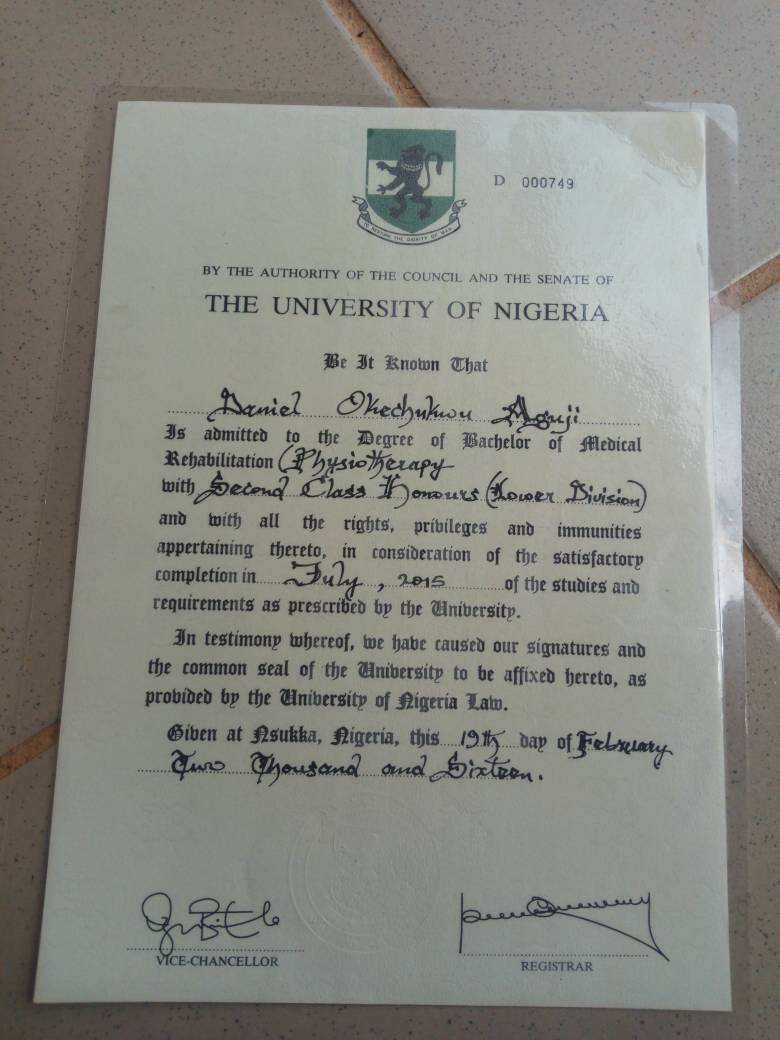 TO RESTORE THE DIGNITY OF MAN
D 000749
BY THE AUTHORITY OF THE COUNCIL AND THE SENATE OF
THE UNIVERSITY OF NIGERIA
Be It Known That
Daniel Okechukwu Aguji
Is admitted to the Degree of Bachelor of Medical
Rehabilitation (Physiotherapy
with Second Class Honours (Lower Division)
and with all the rights, privileges and immunities
appertaining thereto, in consideration of the satisfactory
completion in July, 2015 of the studies and
requirements as prescribed by the University.
In testimony whereof, we have caused our signatures and
the common seal of the University to be affixed hereto, as
provided by the University of Nigeria Law.
Given at Nsukka, Nigeria, this 19th day of February
Two Thousand and Sixteen.
VICE-CHANCELLOR
REGISTRAR